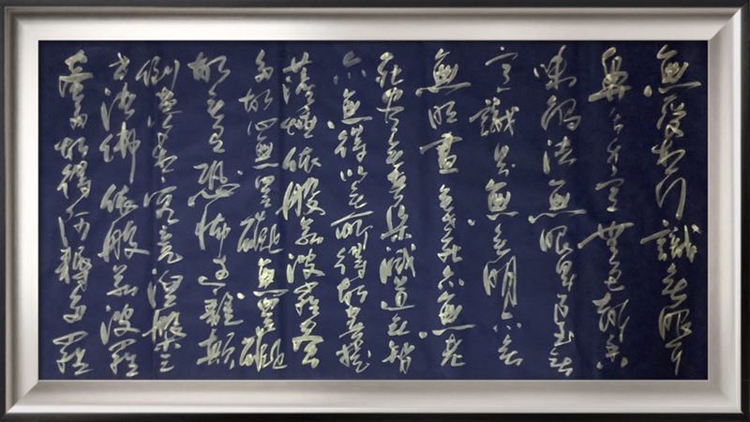 無受想行識無眼耳
鼻舌身意無色聲香
味觸法無眼界乃至無
意識界無無明亦無
無明盡乃至無老死亦無老
死盡無苦集滅道無智
亦無得以無所得故菩提
薩埵依般若波羅蜜
多故心無罣礙無罣礙
故無有恐怖遠離顛
倒夢想究竟涅槃三
世諸佛依般若波羅
蜜多故得阿耨多羅